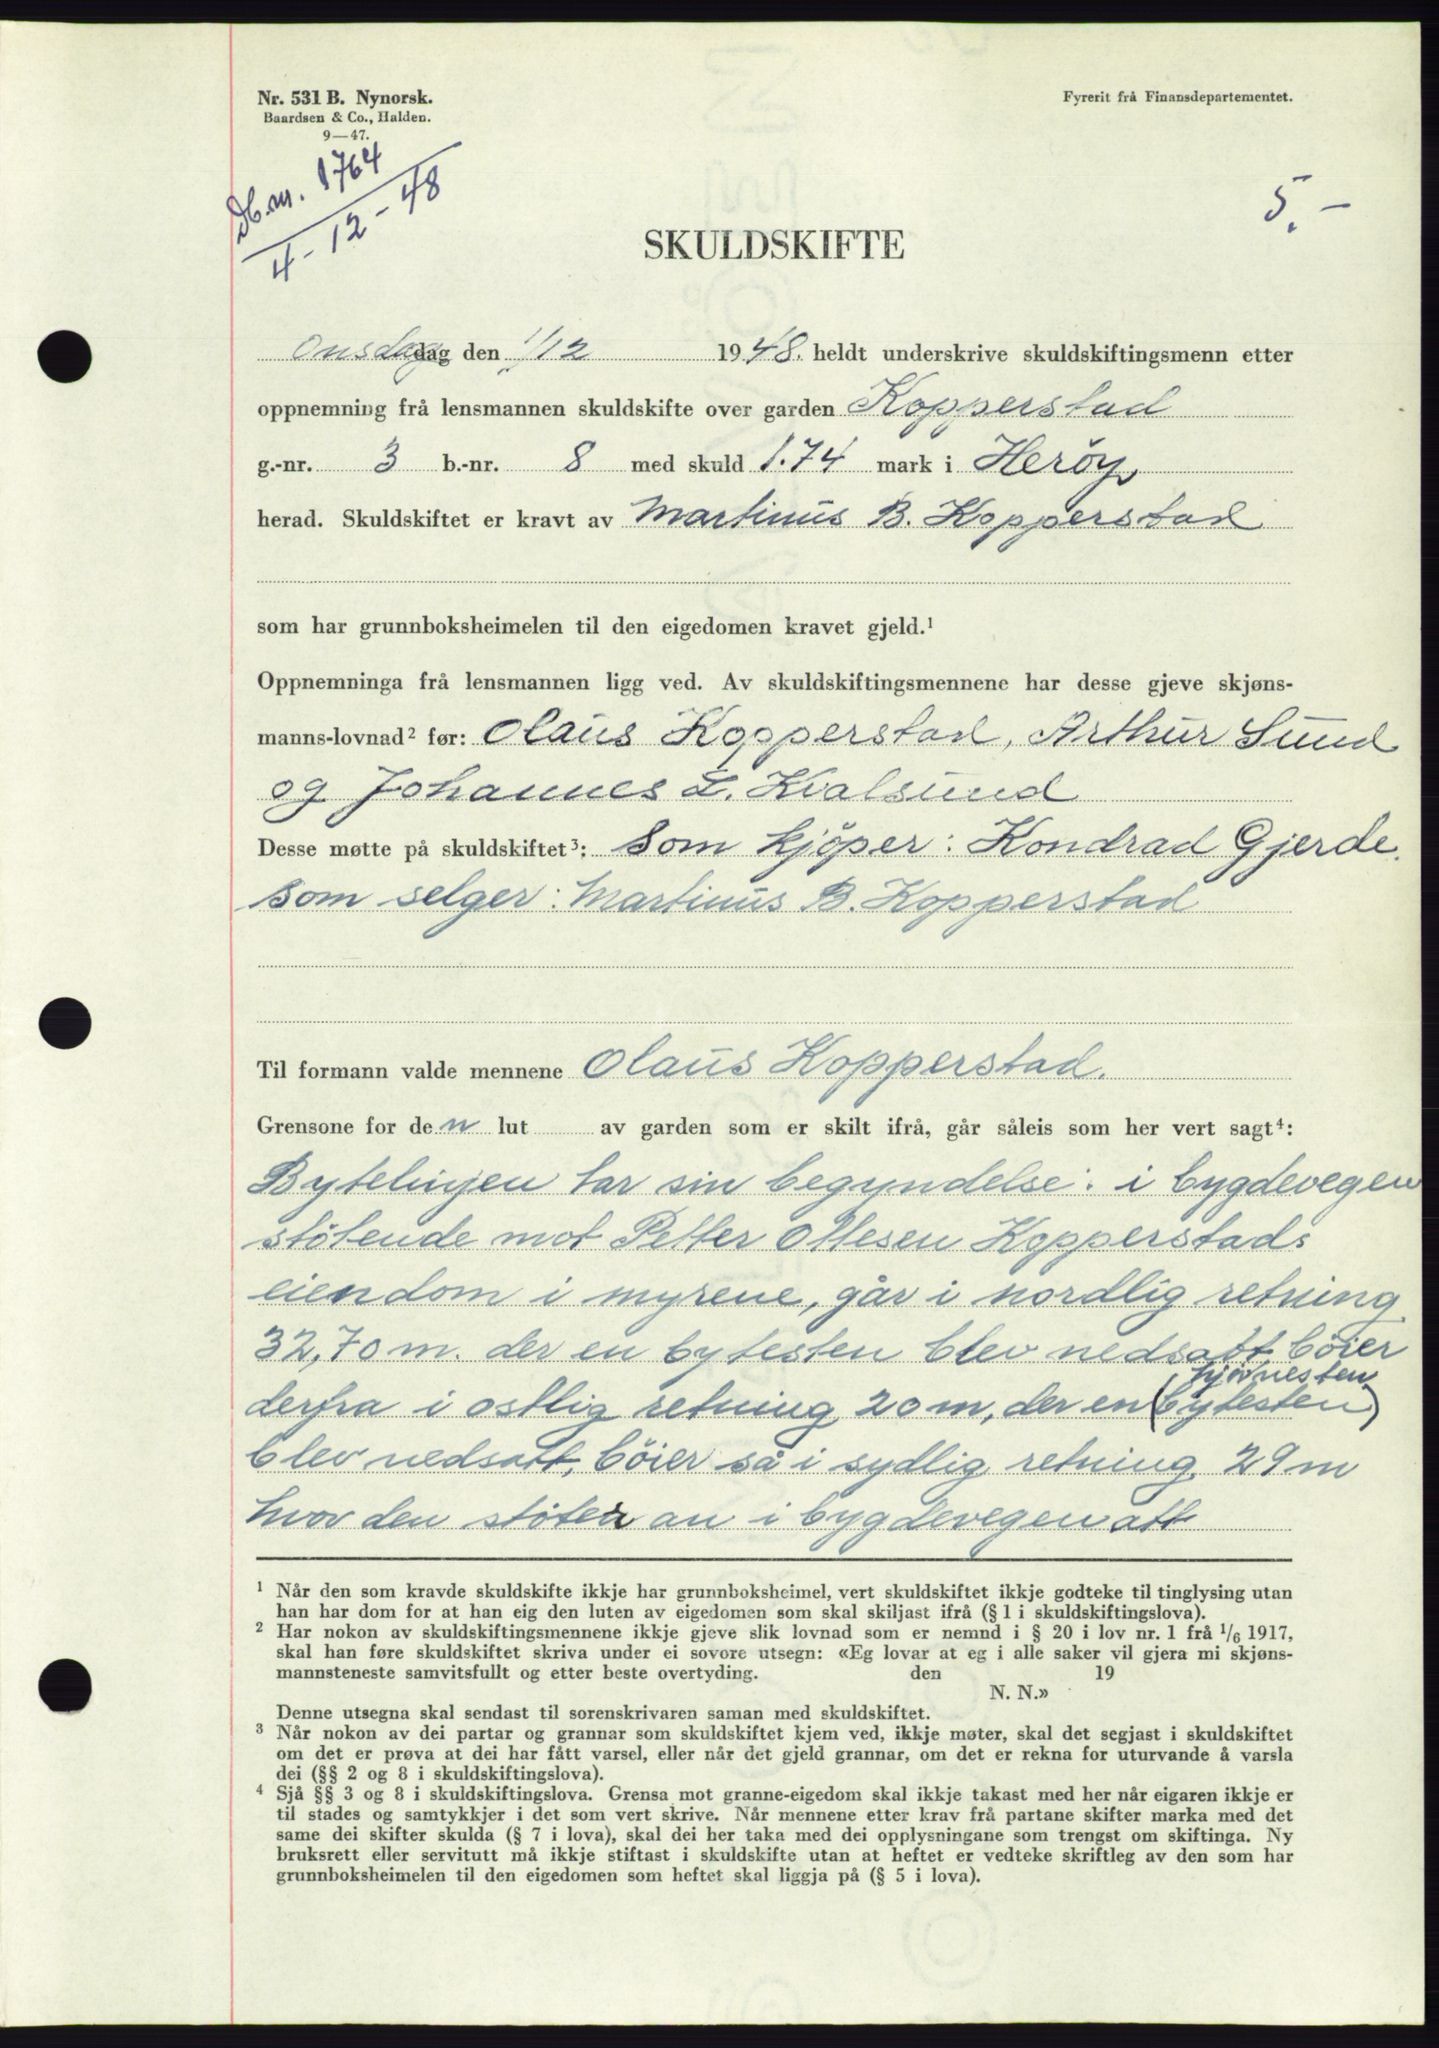 Nr. 531 B. Nynorsk.
Baardsen & Co., Halden.
9—47.
Fyrerit frå Finansdepartementet.
Db.nr. 1764
4-12-48
5.-
SKULDSKIFTE
Onsdag dag den 1/12 1948. heldt underskrive skuldskiftingsmenn etter
oppnemning frå lensmannen skuldskifte over garden Kopperstad
g.-nr. 3 b.-nr. 8 med skuld 1.74 mark i Herøy
herad. Skuldskiftet er kravt av Martinus B. Kopperstad
som har grunnboksheimelen til den eigedomen kravet gjeld.¹
Oppnemninga frå lensmannen ligg ved. Av skuldskiftingsmennene har desse gjeve skjøns-
manns-lovnad² før: Olaus Kopperstad, Arthur Sund
og Johannes L. Kvalsund
Desse møtte på skuldskiftet³: Som kjöper: Kondrad Gjerde.
som selger: Martinus B. Kopperstad
Til formann valde mennene Olaus Kopperstad.
Grensone for den lut av garden som er skilt ifrå, går såleis som her vert sagt⁴:
Bytelinjen tar sin begyndelse: i bygdevegen
stötende mot Petter Ottesen Kopperstads
eiendom i myrene, går i nordlig retning
32,70 m. der en bytesten blev nedsatt, böier
hjörnesten
derfra i ostlig retning 20 m, der en (bytesten)
blev nedsatt, böier så i sydlig retning 29 m
hvor den stöter an i bygdevegen att
¹ Når den som kravde skuldskifte ikkje har grunnboksheimel, vert skuldskiftet ikkje godteke til tinglysing utan
han har dom for at han eig den luten av eigedomen som skal skiljast ifrå (§ 1 i skuldskiftingslova).
² Har nokon av skuldskiftingsmennene ikkje gjeve slik lovnad som er nemnd i § 20 i lov nr. 1 frå 1/6 1917,
skal han føre skuldskiftet skriva under ei sovore utsegn: «Eg lovar at eg i alle saker vil gjera mi skjøns-
mannsteneste samvitsfullt og etter beste overtyding. den 19
N. N.»
Denne utsegna skal sendast til sorenskrivaren saman med skuldskiftet.
³ Når nokon av dei partar og grannar som skuldskiftet kjem ved, ikkje møter, skal det segjast i skuldskiftet
om det er prøva at dei har fått varsel, eller når det gjeld grannar, om det er rekna for uturvande å varsla
dei (§§ 2 og 8 i skuldskiftingslova).
⁴ Sjå §§ 3 og 8 i skuldskiftingslova. Grensa mot granne-eigedom skal ikkje takast med her når eigaren ikkje er
til stades og samtykkjer i det som vert skrive. Når mennene etter krav frå partane skifter marka med det
same dei skifter skulda (§ 7 i lova), skal dei her taka med dei opplysningane som trengst om skiftinga. Ny
bruksrett eller servitutt må ikkje stiftast i skuldskifte utan at heftet er vedteke skriftleg av den som har
grunnboksheimelen til den eigedomen som heftet skal liggja på (§ 5 i lova).